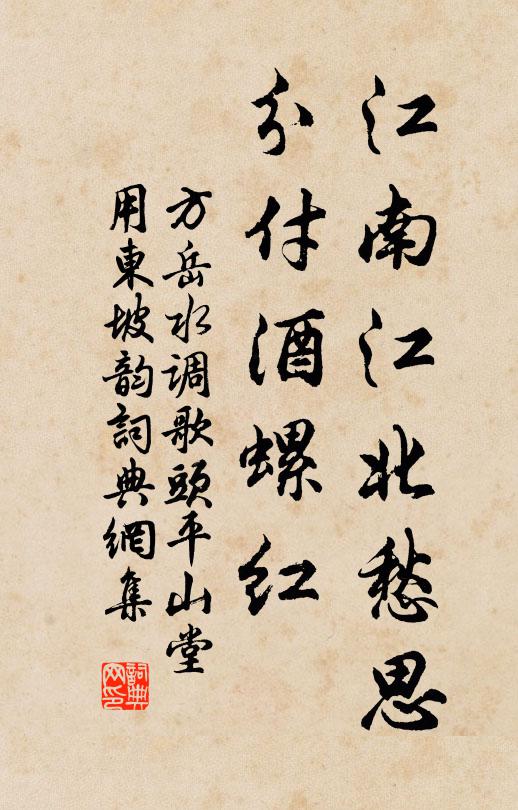 江南江北愁思
分付酒螺红
方岳水调歌頭平山堂
用東坡韵詞典網集
詞典
网印